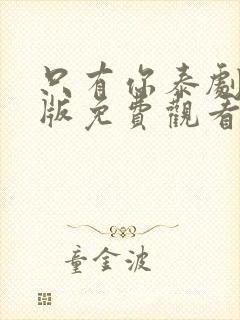 只有你泰劇
版免費觀看
童金波